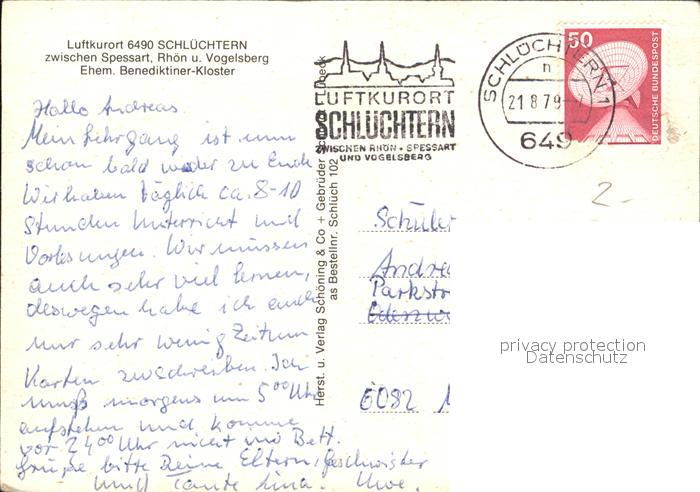 Luftkurort 6490 SCHLÜCHTERN
zwischen Spessart, Rhön u. Vogelsberg
Ehem. Benediktiner-Kloster
Hallo Andreas.
Mein Lehrgang ist nun
schon bald wieder zu Ende
Wir haben täglich ca. 8-10
Stunden Unterricht und
Vorlesungen. Wir müssen
auch sehr viel lernen,
deswegen habe ich auch
nur sehr wenig Zeit um
Karten zu schreiben. Ich
muß morgens um 5⁰⁰ Uhr
aufstehen und komme
vor 24⁰⁰ Uhr nicht ins Bett.
Grüße bitte Deine Eltern, Geschwister
und Tante Lina. Uwe.
Herst. u. Verlag Schöning & Co + Gebrüder Lübeck
as Bestellnr. Schlüch 102
LUFTKURORT
SCHLÜCHTERN
ZWISCHEN RHÖN · SPESSART
UND VOGELSBERG
SCHLÜCHTERN 1
n
21.8.79
649
50
DEUTSCHE BUNDESPOST
2.-
Schüler
Andrea
Parkstr
6082
privacy protection
Datenschutz